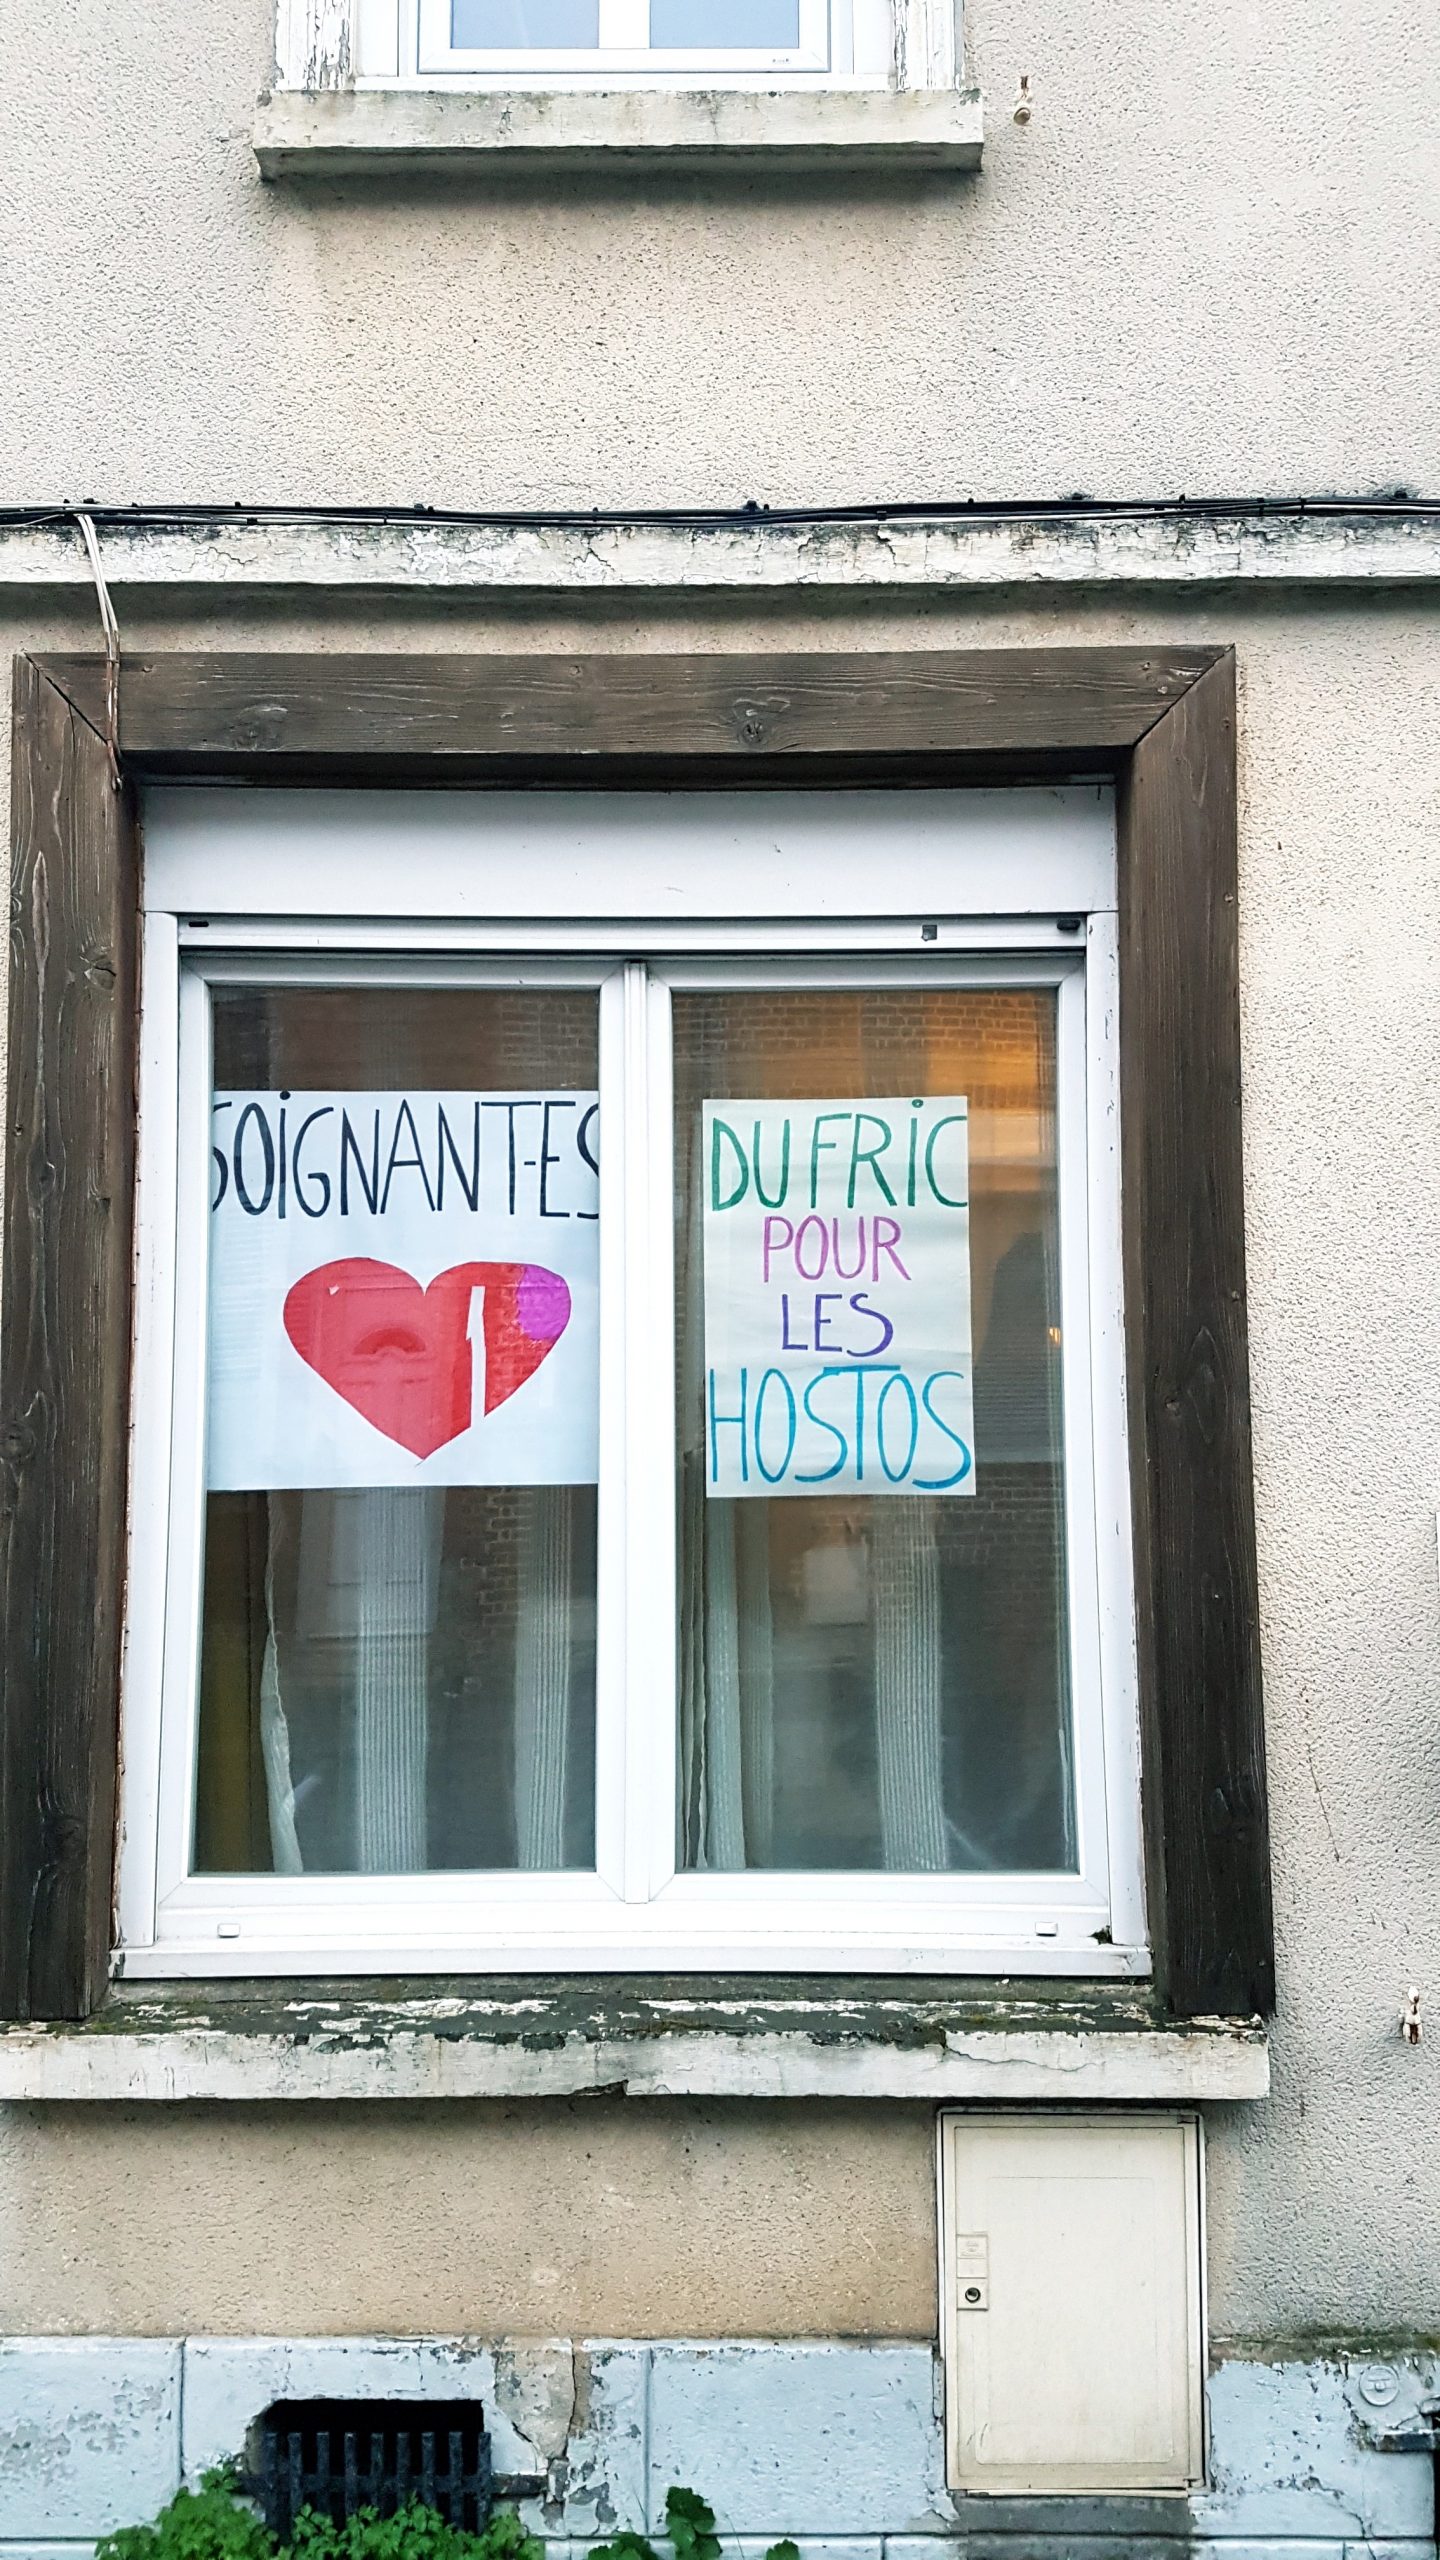 SOiGNANT-ES
DU FRiC
POUR
LES
HOSTOS